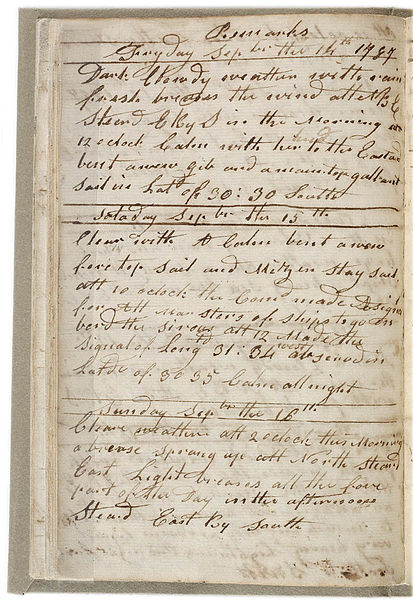 Remarks
Fryday Sepbr the 14th 1787
Dark Clowdy weather with rain
fresh breases the wind att NBE
Steard EByS in the Morning
12 oclock Calm with
bent a new gib and a maintopgallant
sail in Latd of 30:30 South
Sataday Sepbr the 15th
Clear with A Calm bent a new
fore top sail and Mizzen Stay sail
att 10 oclock the Comd made A Signal
for all Masters of ships to go on
bord the att 12 Made the
Signal of Longd 31:34 west observed in
Latde of 30 35 Calm all night
Sunday Sepbr the 16th
Cleare weather att 2 oclock this Morning
a brease sprang up att North steard
East Light breases all the fore
part of the Day in the afternoon
Steard East By South